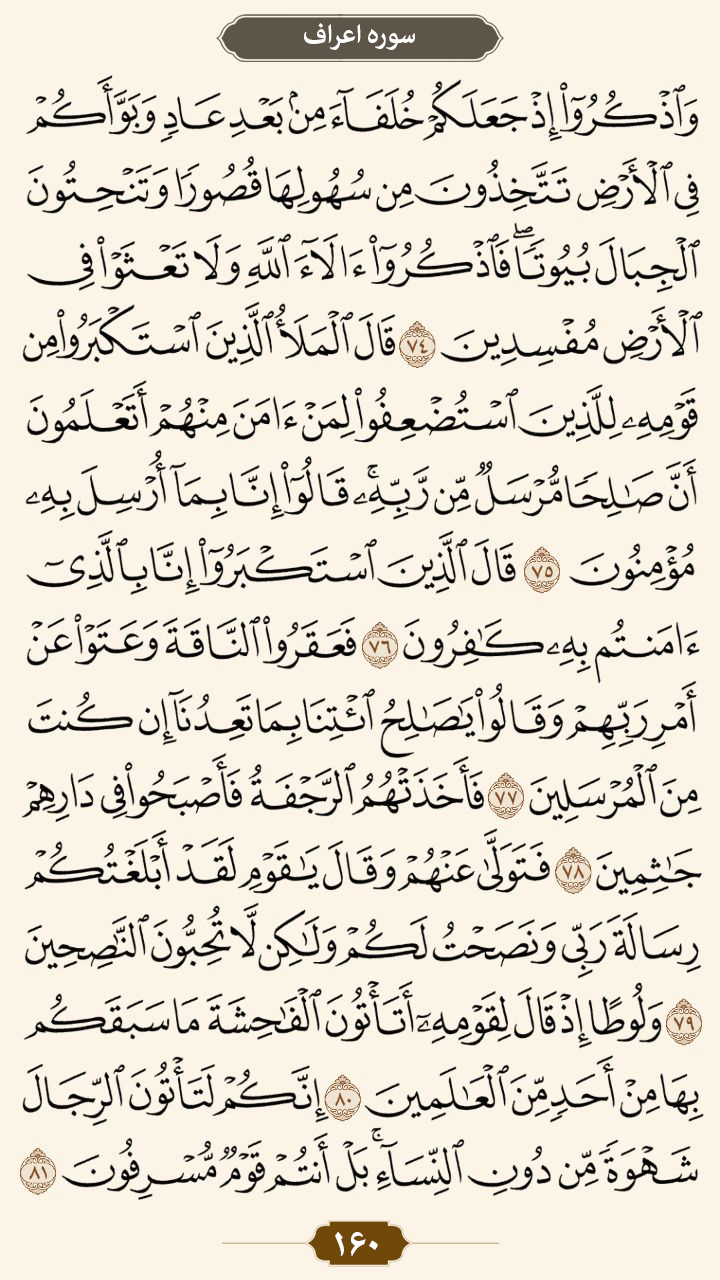 سوره اعراف
وَٱذۡكُرُوٓاْ إِذۡ جَعَلَكُمۡ خُلَفَآءَ مِنۢ بَعۡدِ عَادٖ وَبَوَّأَكُمۡ
فِي ٱلۡأَرۡضِ تَتَّخِذُونَ مِن سُهُولِهَا قُصُورٗا وَتَنۡحِتُونَ
ٱلۡجِبَالَ بُيُوتٗاۖ فَٱذۡكُرُوٓاْ ءَالَآءَ ٱللَّهِ وَلَا تَعۡثَوۡاْ فِي
ٱلۡأَرۡضِ مُفۡسِدِينَ ٧٤ قَالَ ٱلۡمَلَأُ ٱلَّذِينَ ٱسۡتَكۡبَرُواْ مِن
قَوۡمِهِۦ لِلَّذِينَ ٱسۡتُضۡعِفُواْ لِمَنۡ ءَامَنَ مِنۡهُمۡ أَتَعۡلَمُونَ
أَنَّ صَٰلِحٗا مُّرۡسَلٞ مِّن رَّبِّهِۦۚ قَالُوٓاْ إِنَّا بِمَآ أُرۡسِلَ بِهِۦ
مُؤۡمِنُونَ ٧٥ قَالَ ٱلَّذِينَ ٱسۡتَكۡبَرُوٓاْ إِنَّا بِٱلَّذِيٓ
ءَامَنتُم بِهِۦ كَٰفِرُونَ ٧٦ فَعَقَرُواْ ٱلنَّاقَةَ وَعَتَوۡاْ عَنۡ
أَمۡرِ رَبِّهِمۡ وَقَالُواْ يَٰصَٰلِحُ ٱئۡتِنَا بِمَا تَعِدُنَآ إِن كُنتَ
مِنَ ٱلۡمُرۡسَلِينَ ٧٧ فَأَخَذَتۡهُمُ ٱلرَّجۡفَةُ فَأَصۡبَحُواْ فِي دَارِهِمۡ
جَٰثِمِينَ ٧٨ فَتَوَلَّىٰ عَنۡهُمۡ وَقَالَ يَٰقَوۡمِ لَقَدۡ أَبۡلَغۡتُكُمۡ
رِسَالَةَ رَبِّي وَنَصَحۡتُ لَكُمۡ وَلَٰكِن لَّا تُحِبُّونَ ٱلنَّٰصِحِينَ
٧٩ وَلُوطًا إِذۡ قَالَ لِقَوۡمِهِۦٓ أَتَأۡتُونَ ٱلۡفَٰحِشَةَ مَا سَبَقَكُم
بِهَا مِنۡ أَحَدٖ مِّنَ ٱلۡعَٰلَمِينَ ٨٠ إِنَّكُمۡ لَتَأۡتُونَ ٱلرِّجَالَ
شَهۡوَةٗ مِّن دُونِ ٱلنِّسَآءِۚ بَلۡ أَنتُمۡ قَوۡمٞ مُّسۡرِفُونَ ٨١
۱۶۰